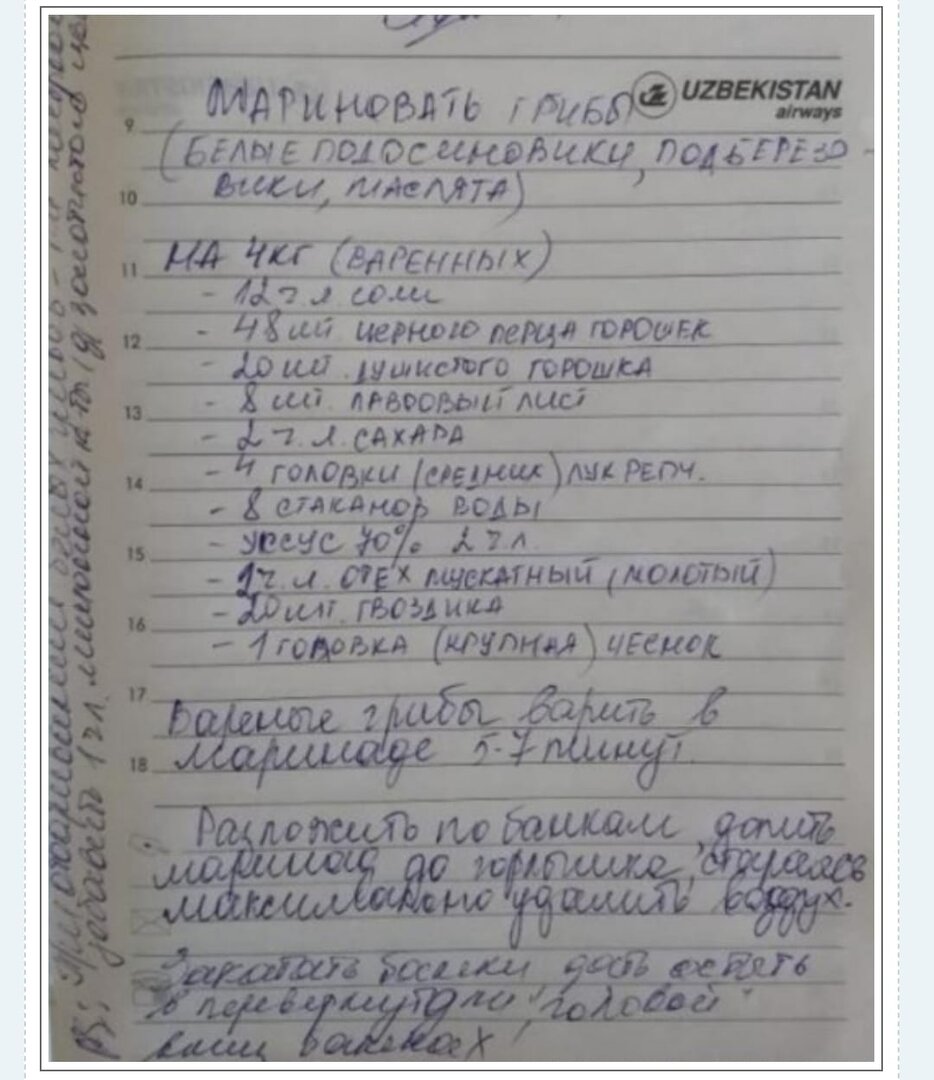 UZBEKISTAN
airways
МАРИНОВАТЬ ГРИБЫ
9
(БЕЛЫЕ ПОДОСИНОВИКИ, ПОДБЕРЕЗО-
10 ВИКИ, МАСЛЯТА)
11 НА 4КГ (ВАРЕННЫХ)
- 12 ч л. соли
12 - 48 шт черного перца горошек
- 20 шт. душистого горошка
13 - 8 шт. лавровый лист
- 2 ч. л. сахара
14 - 4 головки (средних) лук репч.
- 8 стаканов воды
15 - уксус 70% 2 ч л.
- 1 ч. л. орех мускатный (молотый)
16 - 20 шт. гвоздика
- 1 головка (крупная) чеснок
17
Вареные грибы варить в
18 маринаде 5-7 минут.
Разложить по банкам, долить
маринад до горлышка, стараясь
максимально удалить воздух.
Закатать баночки, дать остыть
в перевернутом "головой
вниз"
PS: При
добавить 1 ч л. лимонной к-ты (д